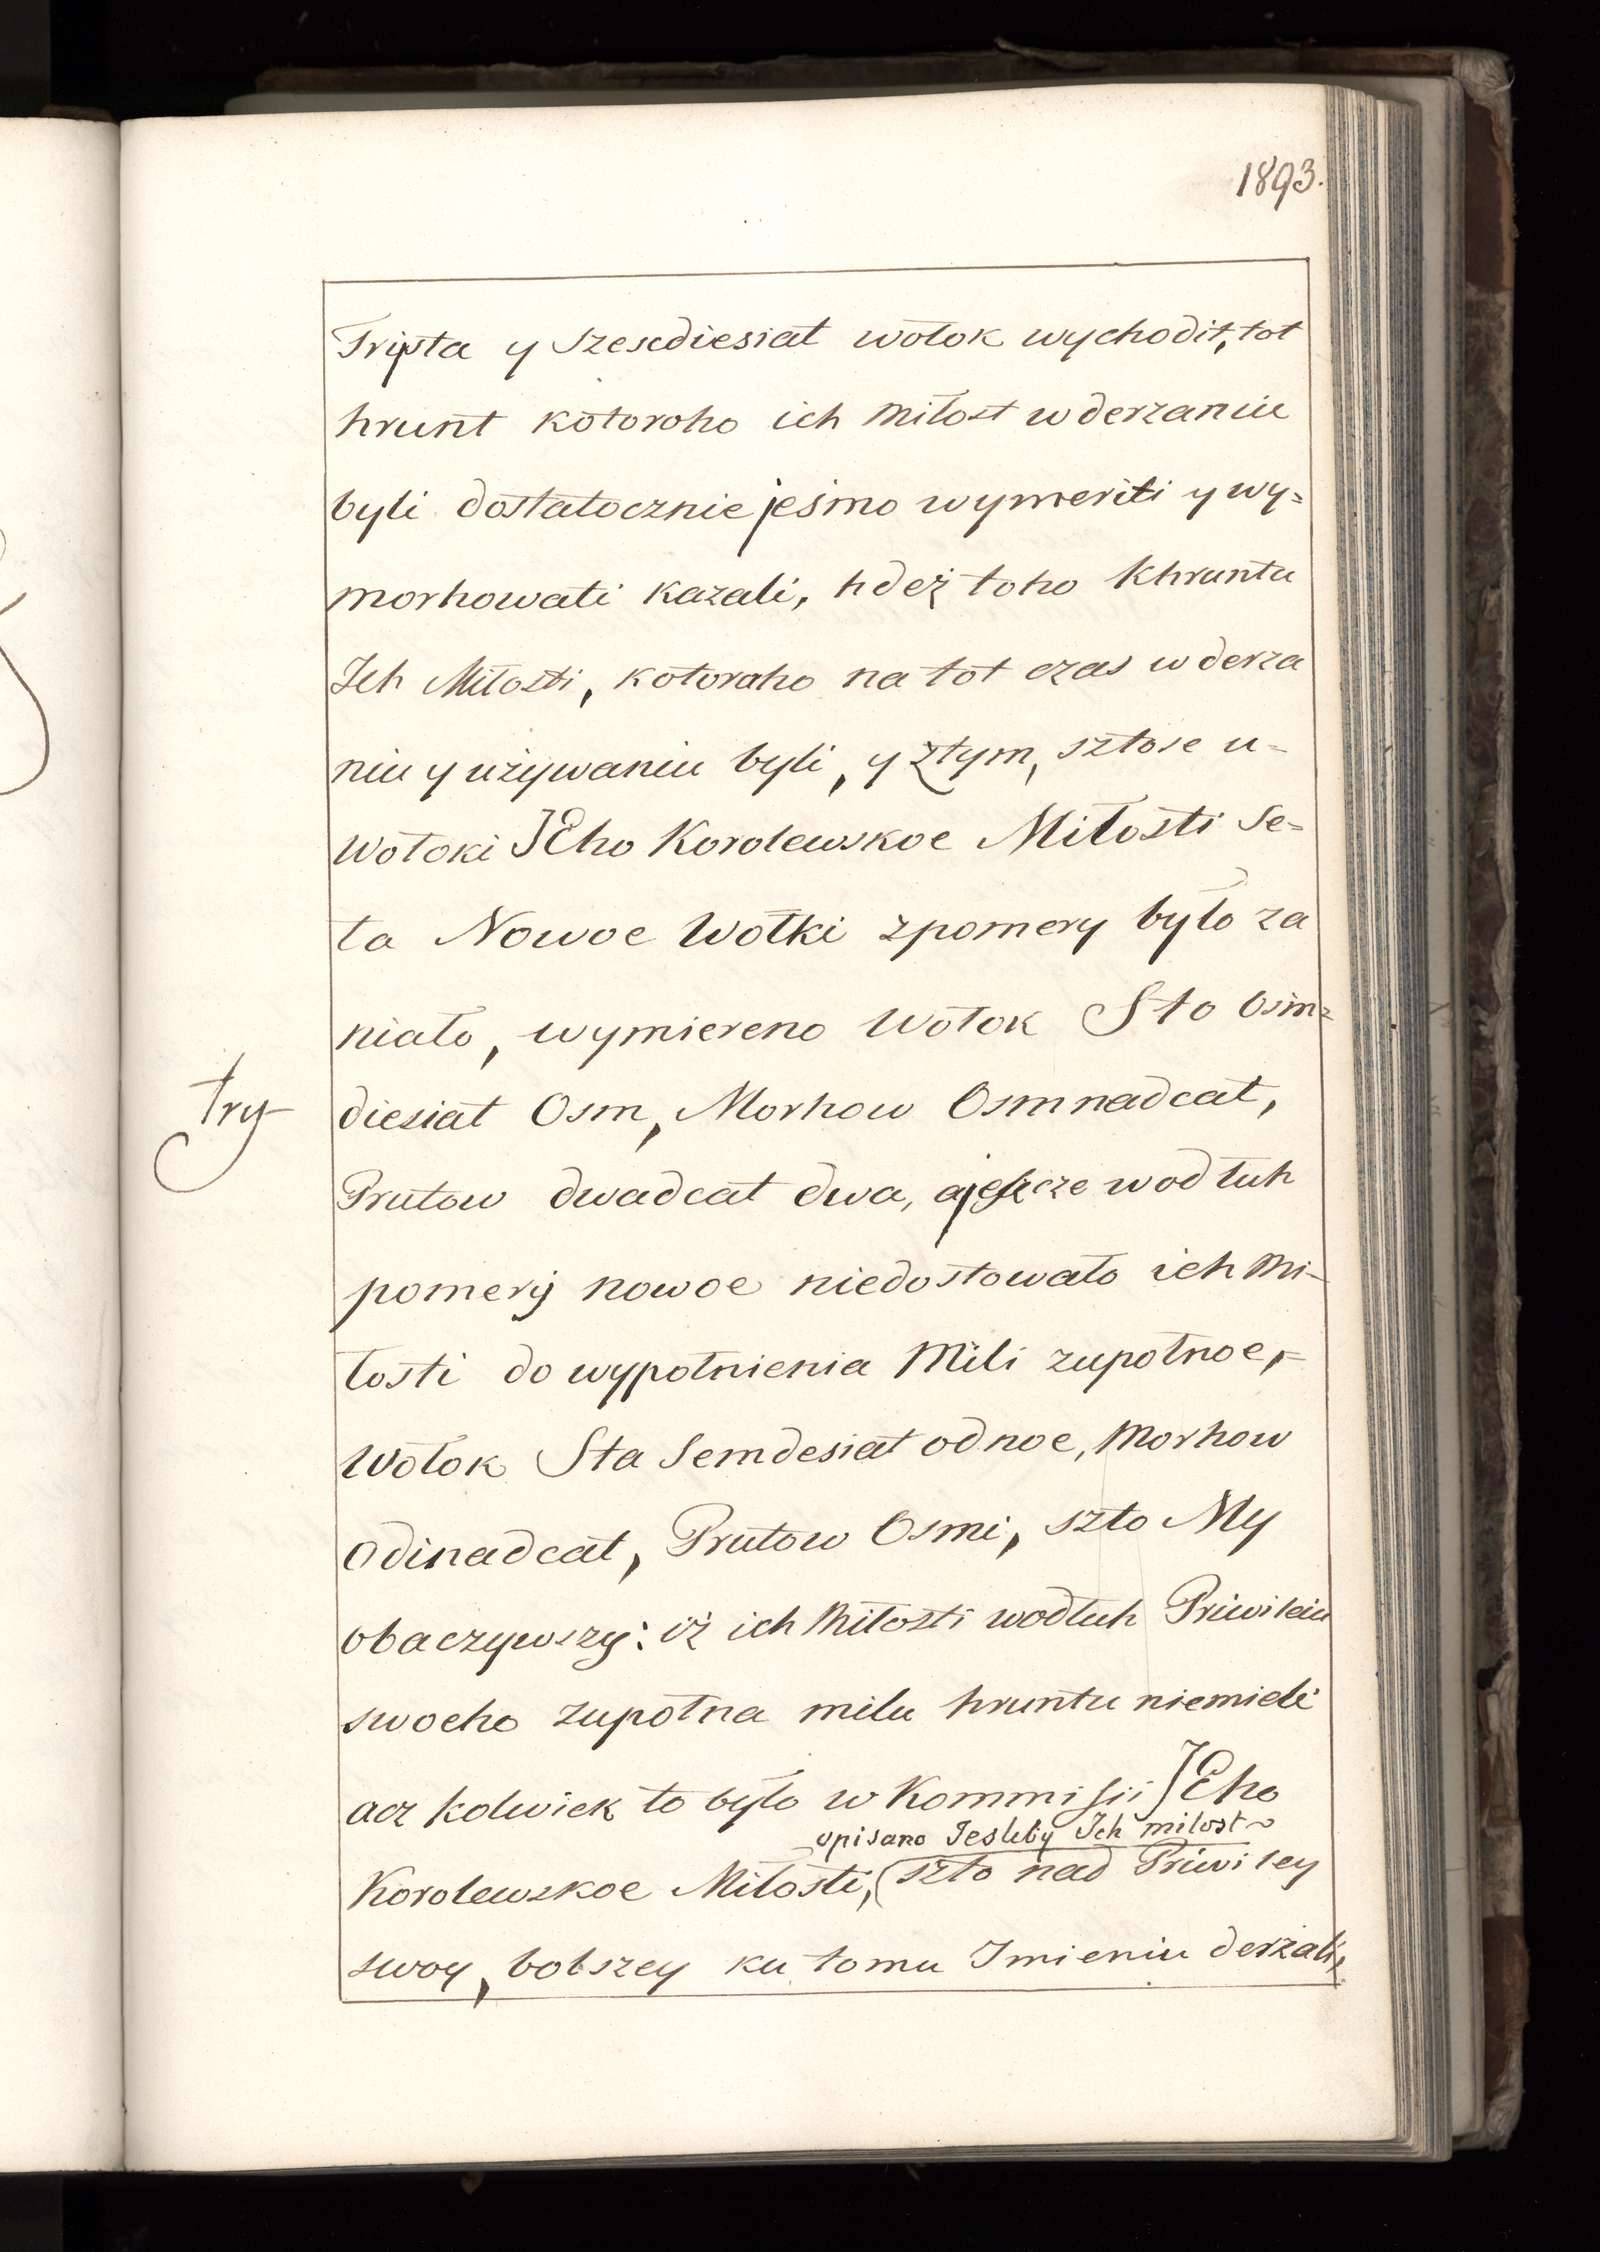 1893.
Trysta y Szescdiesiat wołok wychodit, tot
hrunt kotoroho ich miłost w derzaniu
byli dostatocznie jeśmo wymeriti y wy=
morhowati kazali, hdeż toho khruntu
Ich Miłosti, kotoraho na tot czas w derza
niu y używaniu byli, y ztym, sztose u=
wołoki JEho Korolewskoe Miłosti Se=
ła Nowoe Wołki zpomery było za
niało, wymiereno wołok Sto Osm=
try
diesiat Osm, Morhow Osmnadcat,
Prutow dwadcat dwa, a jeszcze wodłuh
pomery nowoe niedostowało ich Mi=
łosti do wypołnienia Mili zupołnoe,=
Wołok Sta Semdesiat odnoe, Morhow
Odinadcat, Prutow Osmi, szto My
obaczywszy: iż ich Miłosti wodłuh Priwileiu
swoeho zupołna milu hruntu niemieli
acz kolwiek to było w Kommissii JEho
opisano Jesliby Ich milost
Korolewskoe Miłosti, (szto nad Priwiley
swoy, bolszey ku tomu Imieniu derżali,